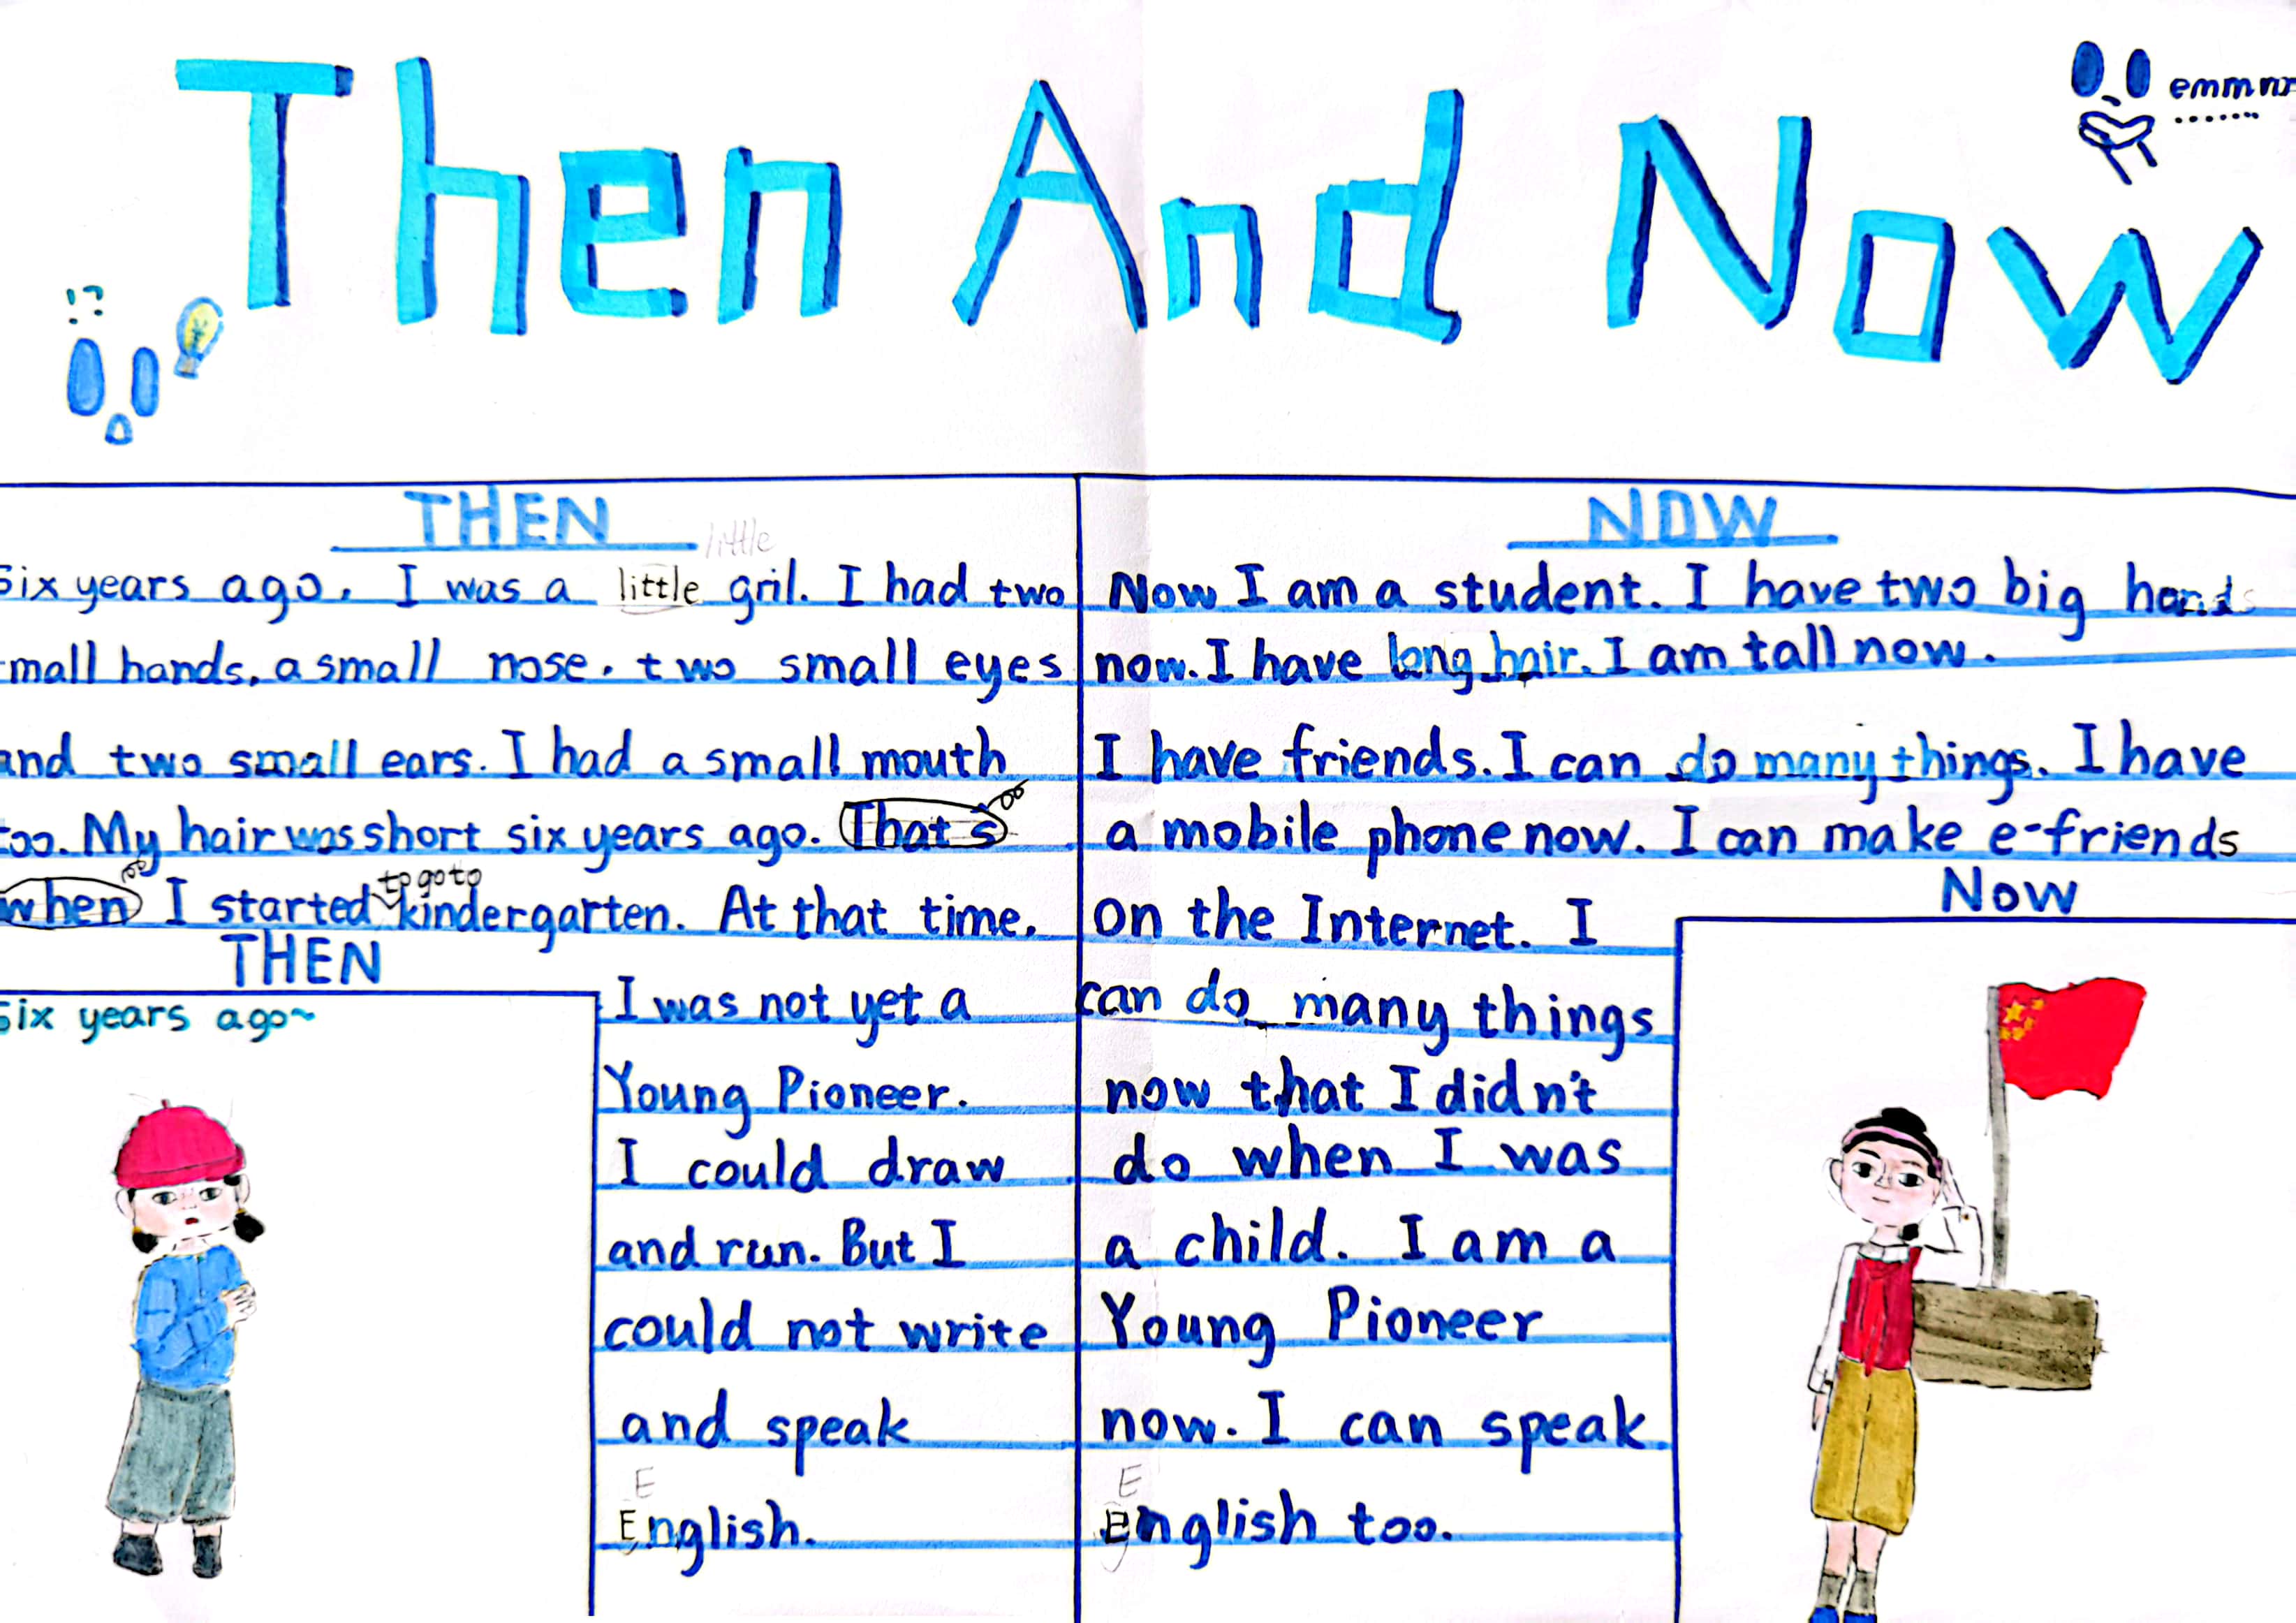 Then And Now
emmm
......
!?
THEN
little
Six years ago, I was a little gril. I had two
small hands, a small nose, two small eyes
and two small ears. I had a small mouth
too. My hair was short six years ago.
I started to go to kindergarten. At that time,
I was not yet a
Young Pioneer.
I could draw
and run. But I
could not write
and speak
E
English.
THEN
Six years ago~
NOW
Now I am a student. I have two big hands
now. I have long hair. I am tall now.
I have friends. I can do many things. I have
a mobile phone now. I can make e-friends
on the Internet. I
can do many things
now that I didn't
do when I was
a child. I am a
Young Pioneer
now. I can speak
E
English too.
Now